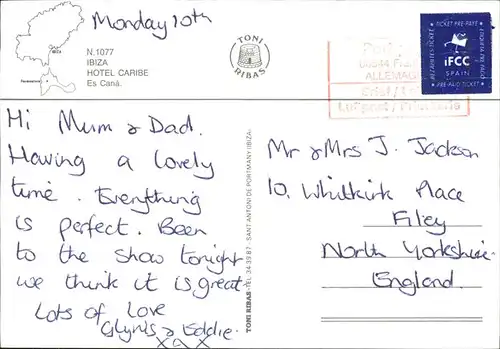 Monday 10th
IBIZA
N.1077
IBIZA
HOTEL CARIBE
Es Caná.
TONI
RIBAS
ALLEMAGNE
Luftpost / Prioritaire
TICKET PRE-PAYE
iFCC
SPAIN
PRE-PAID TICKET
Hi Mum & Dad.
Having a lovely
time. Everything
is perfect. Been
to the show tonight
we think it is great
Lots of Love
Glynis & Eddie.
xox
TONI RIBAS-TEL. 34 39 87 - SANT ANTONI DE PORTMANY (IBIZA)
Mr & Mrs J. Jackson
10, Whitkirk Place
Filey
North Yorkshire.
England.